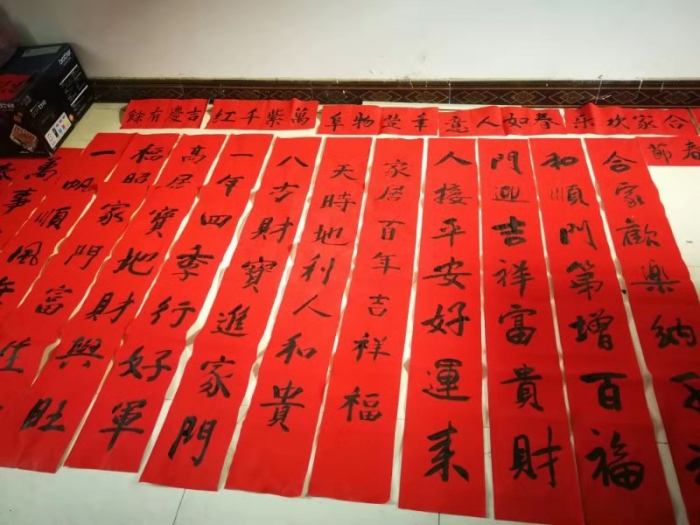 吉慶有餘
萬紫千紅
年豐物阜
春如人意
合家欢樂
春節
合家歡樂納
和順門第增百福
門迎吉祥富貴財
人接平安好運来
家居百年吉祥福
天時地利人和貴
八方財寶進家門
一年四季行好運
高居寶地財興旺
福昭家門富生
一帆順風
萬事